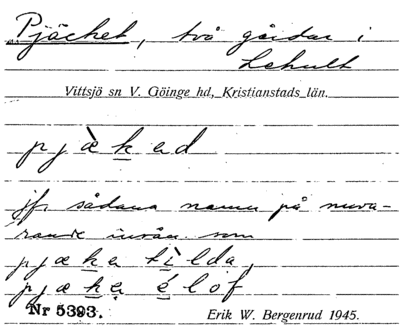 Pjäcket, två gårdar i
Lehult
Vittsjö sn V. Göinge hd, Kristianstads län.
pjæ̀kəd
jfr sådana namn på nuva-
rande invån. som
pjækə tìlda,
pjækə élof
Nr 5393.
Erik W. Bergenrud 1945.